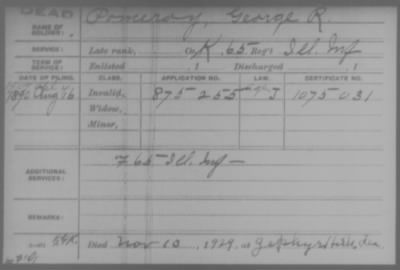 DEAD
NAME OF SOLDIER: Pomeroy, George R.
SERVICE: Late rank, Co K, 65 Reg't Ill. Inf
TERM OF SERVICE: Enlisted , 1 Discharged , 1
DATE OF FILING. CLASS. APPLICATION NO. LAW. CERTIFICATE NO.
1890 Aug 16 Invalid, 875 255 J 1075 031
Widow,
Minor,
ADDITIONAL SERVICES: F 65 Ill. Inf —
REMARKS:
Died Nov 10, 1929, at Zephyrhills, Fla.